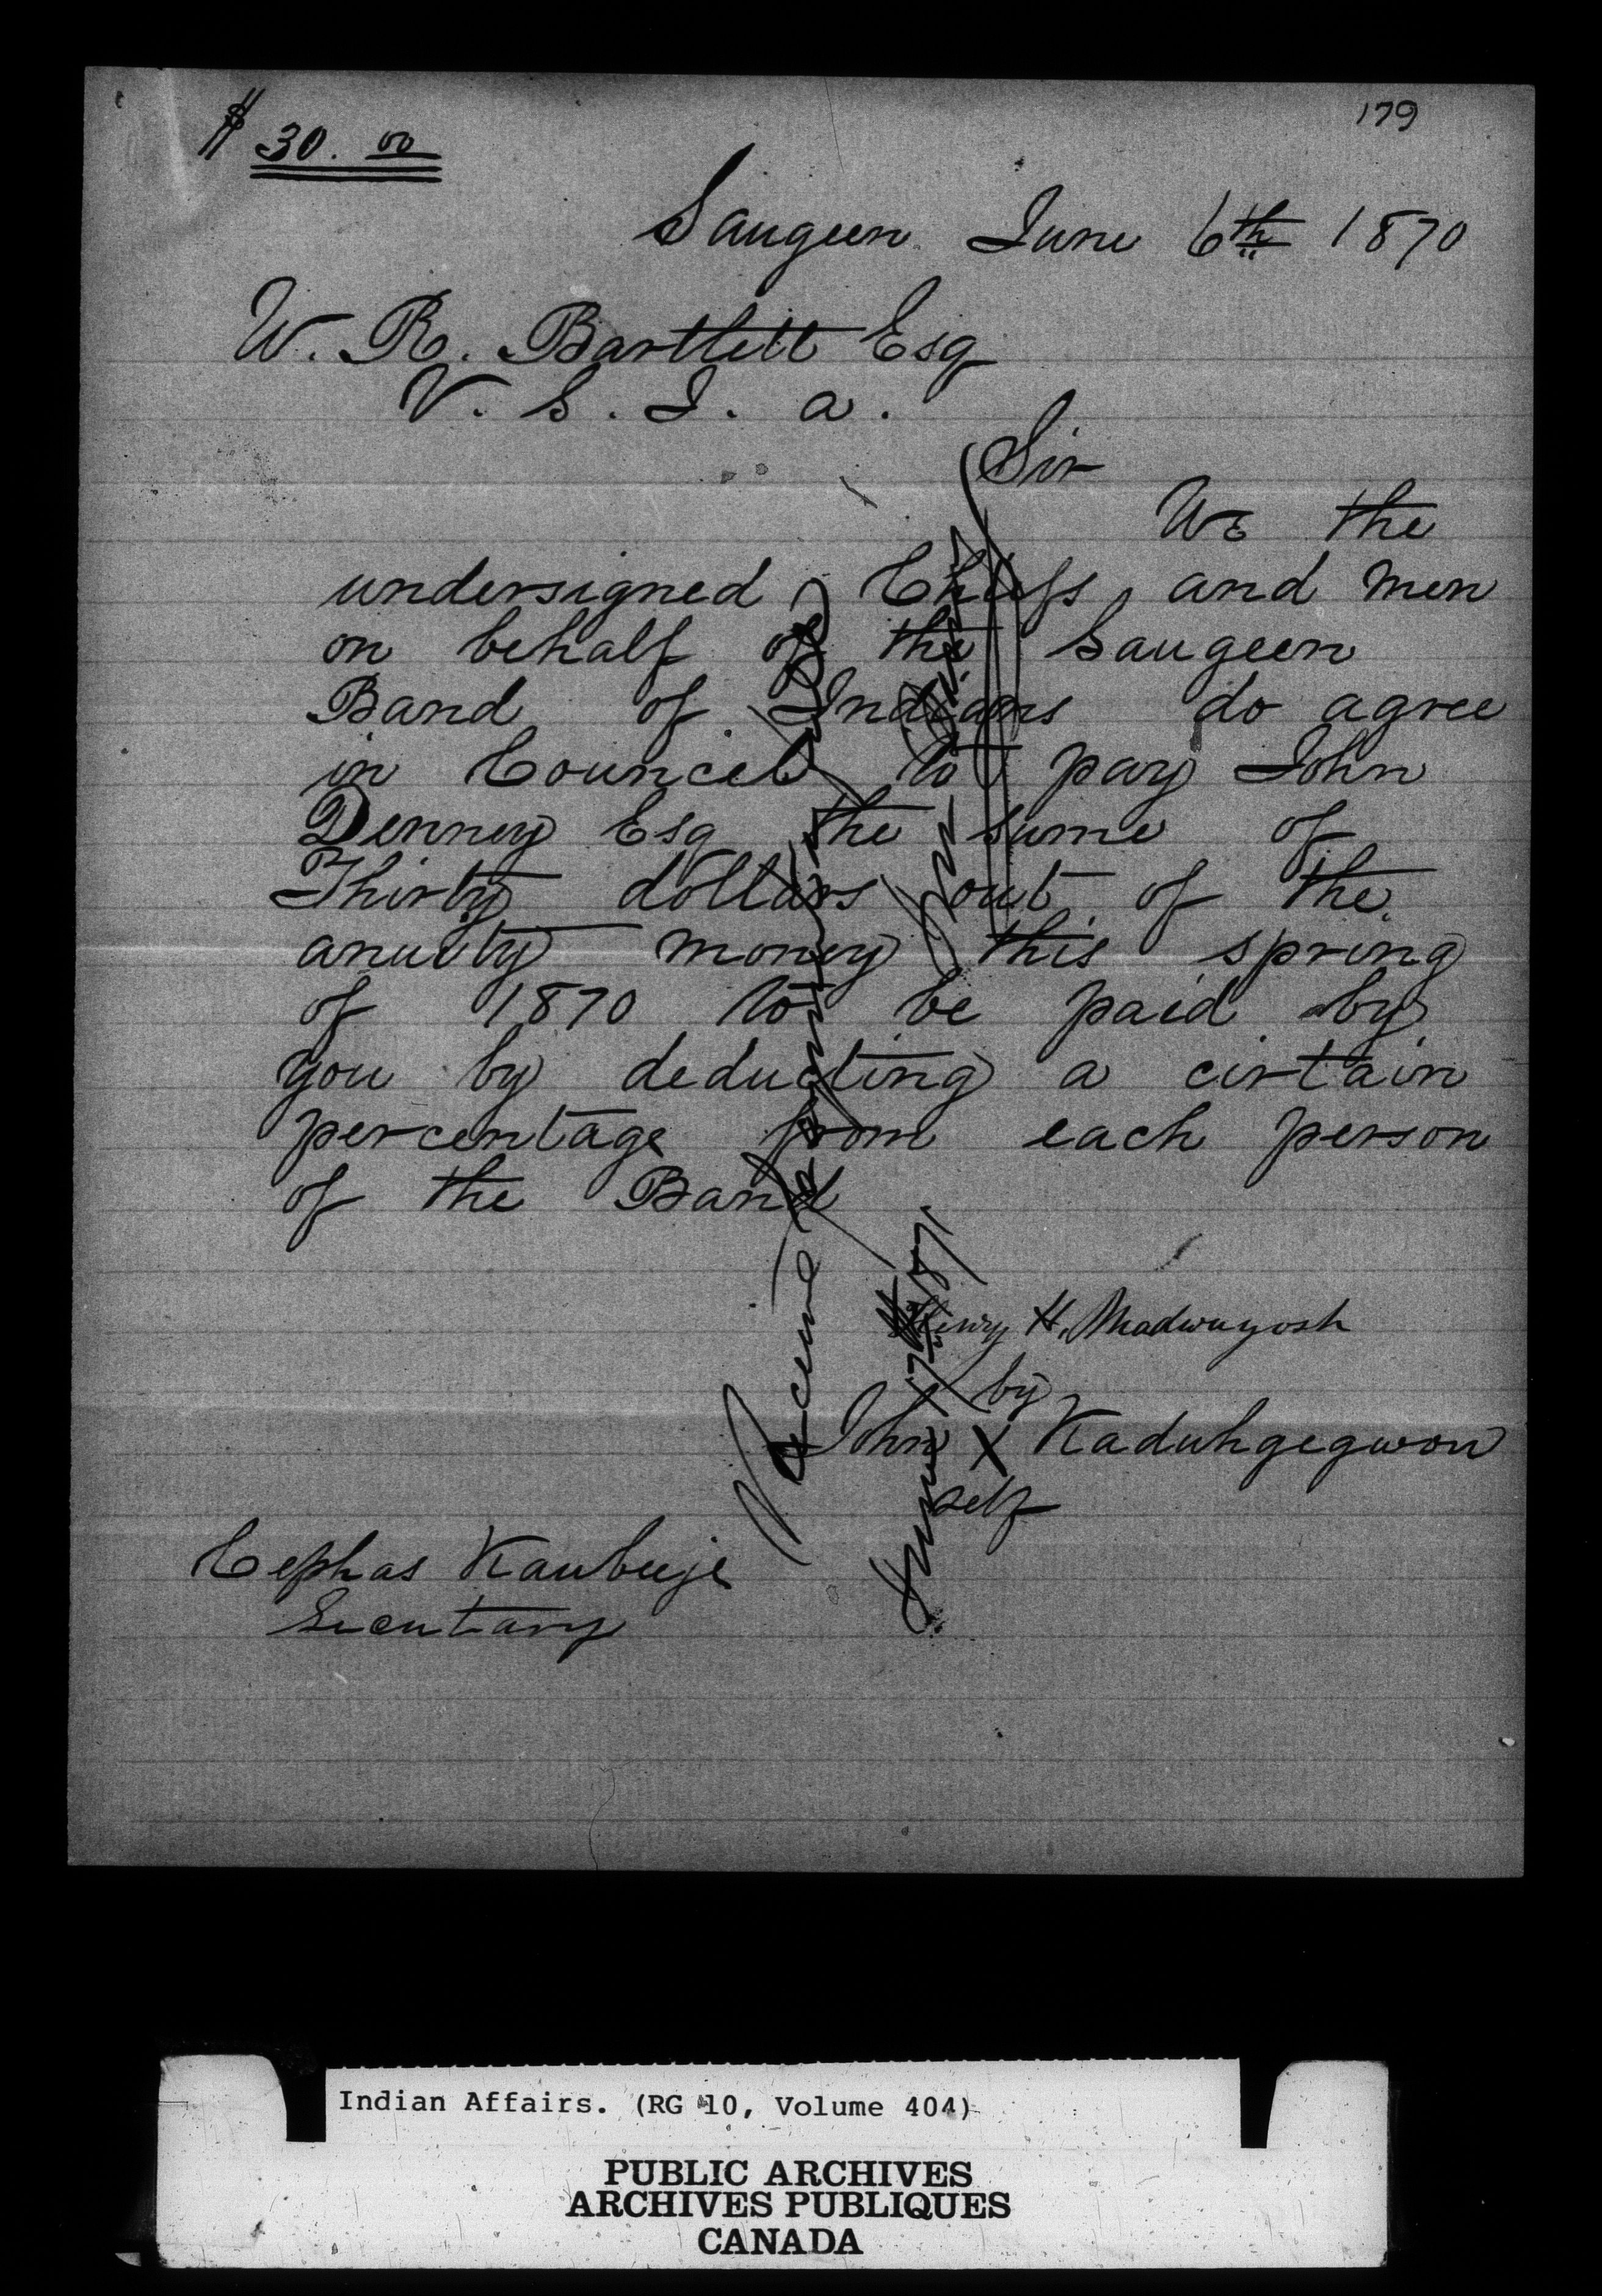 179
$ 30. 00
Saugeen June 6th 1870
W. R. Bartlett Esq
V. S. I. a.
Sir
We the
undersigned, Chiefs, and men
on behalf of the Saugeen
Band of Indians do agree
in Councel to pay John
Denney Esq the sume of
Thirty dollars out of the
anuity money this spring
of 1870 to be paid by
you by deducting a cirtain
percentage from each person
of the Band
Henry H. Madwayosh
by
John X Kaduhgegwon
self
Cephas Kaubeeje
Secutary
Received payment
June 17th 1871
Indian Affairs. (RG 10, Volume 404)
PUBLIC ARCHIVES
ARCHIVES PUBLIQUES
CANADA